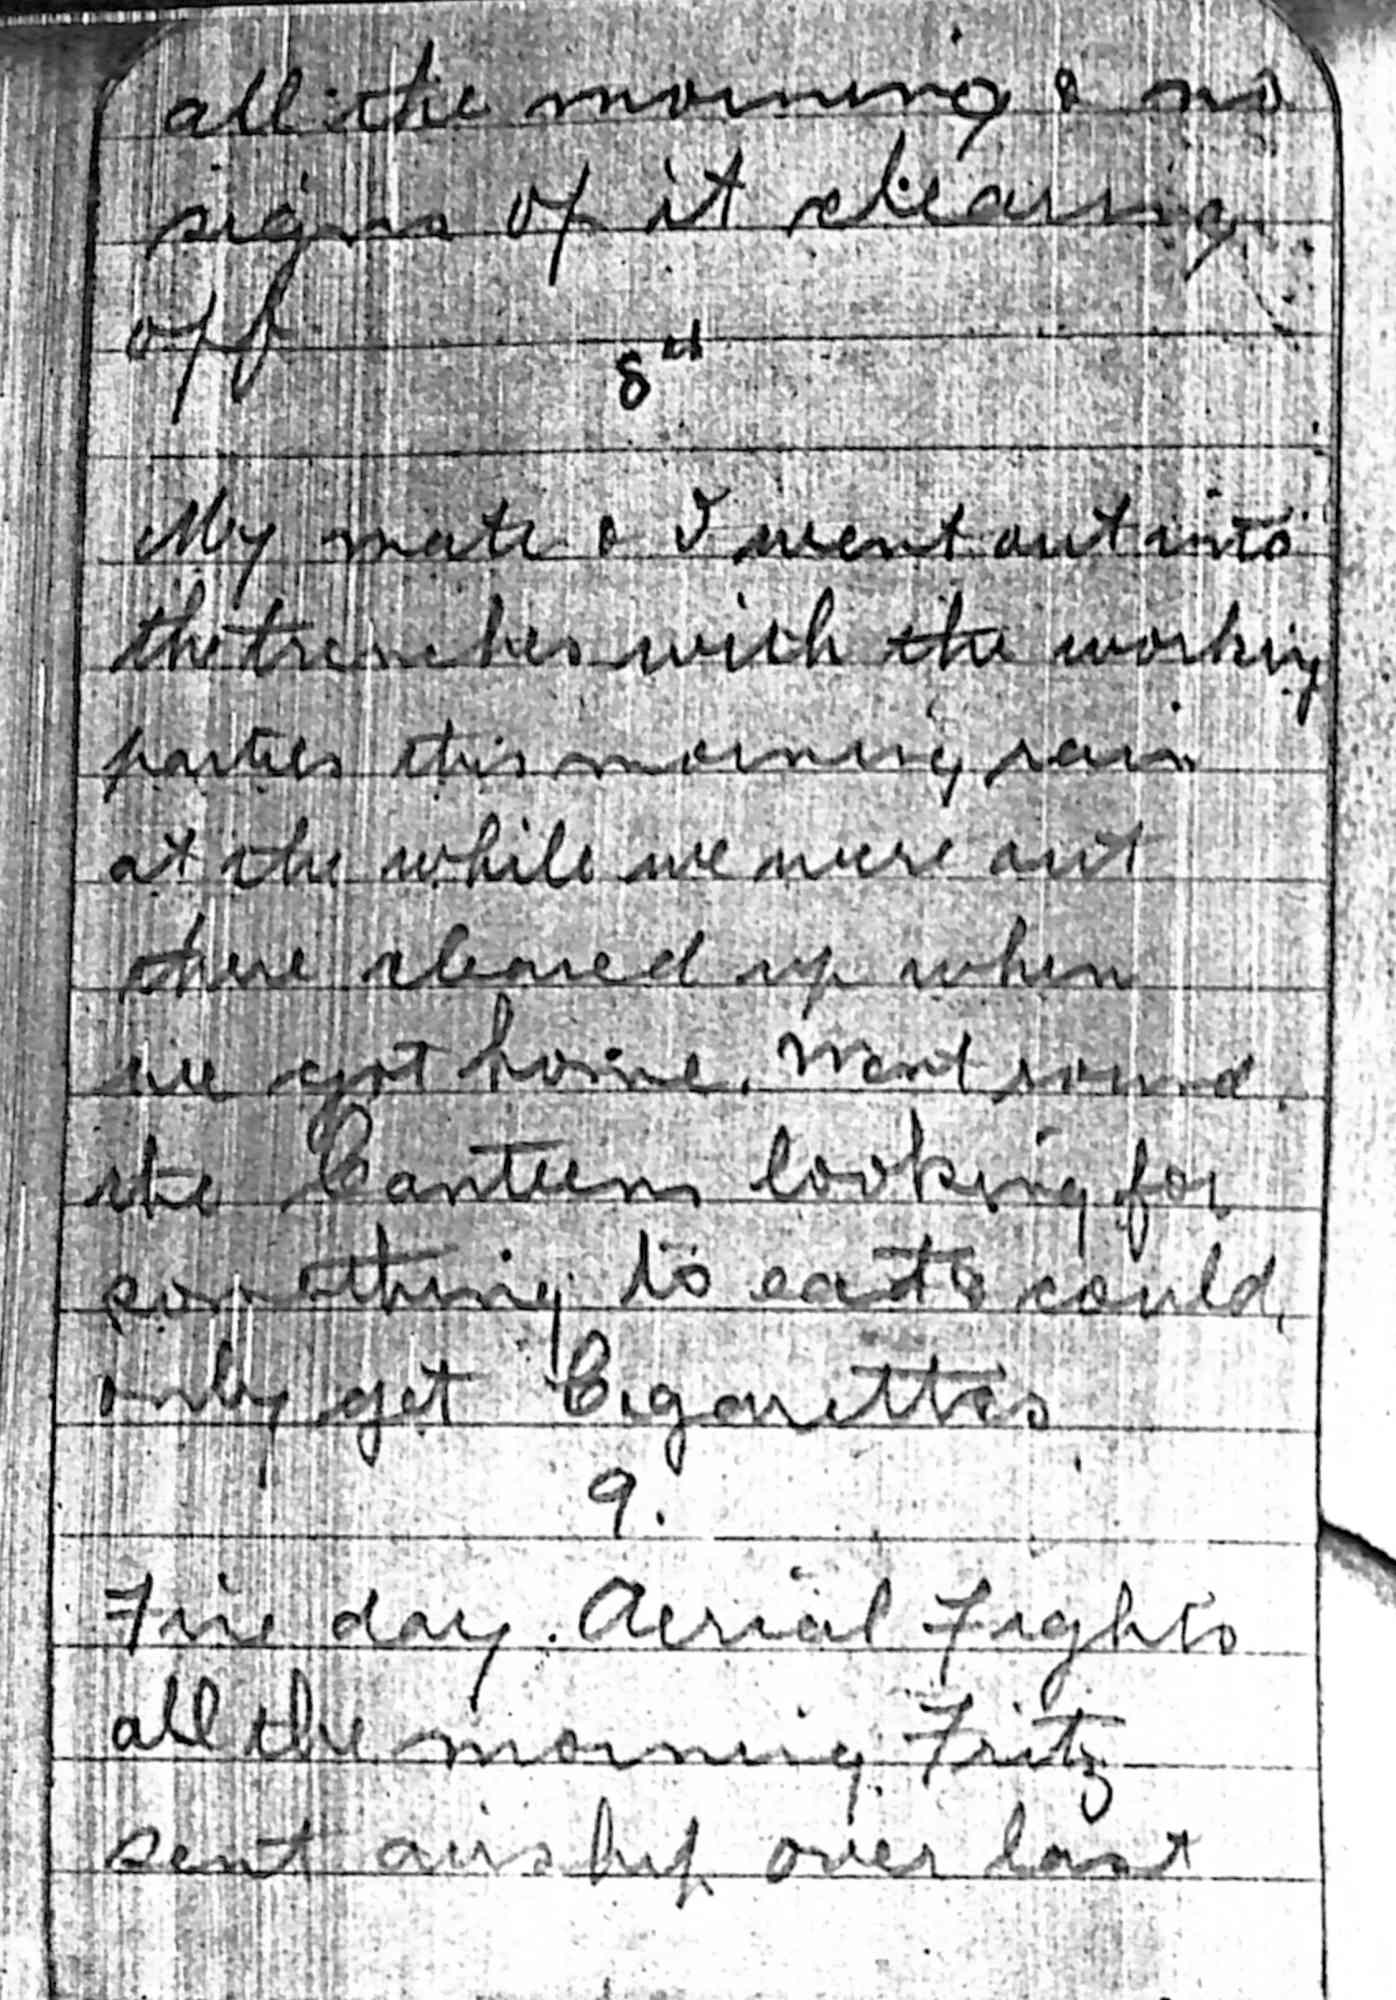 all the morning & no
signs of it clearing
off
8th
My mate & I went out into
the trenches with the working
parties this morning rain
at the while we were out
there cleared up when
we got home. Went round
the Canteens looking for
something to eat & could
only get Cigarettes
9.
Fine day. Aerial Fights
all the morning. Fritz
sent airship over last